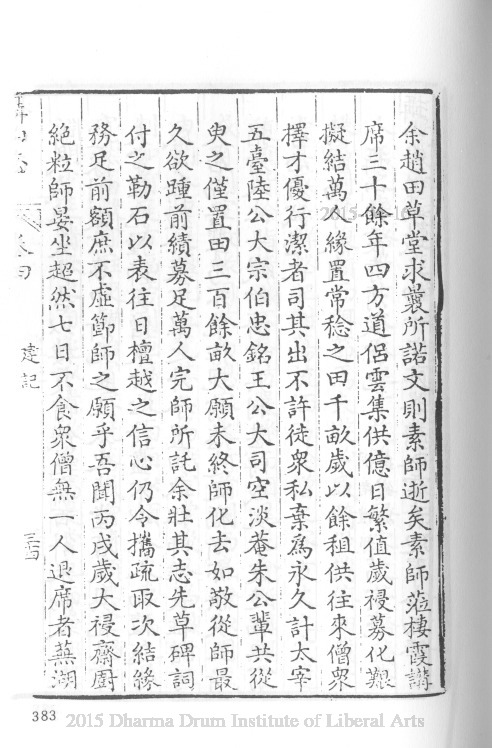 余趙田草堂求曩所諾文則素師逝矣素師蒞棲霞講
席三十餘年四方道侶雲集供億日繁值歲祲募化艱
擬結萬人緣置常稔之田千畝歲以餘租供往來僧眾
擇才優行潔者司其出不許徒眾私棄為永久計太宰
五臺陸公大宗伯忠銘王公大司空淡菴朱公輩共從
臾之僅置田三百餘畝大願未終師化去如敬從師最
久欲踵前績募足萬人完師所託余壯其志先草碑詞
付之勒石以表往日檀越之信心仍令攜疏取次結緣
務足前額庶不虛節師之願乎吾聞丙戌歲大祲齋廚
絕粒師晏坐超然七日不食眾僧無一人退席者蕪湖
卷四
建記
三四
383
2015 Dharma Drum Institute of Liberal Arts